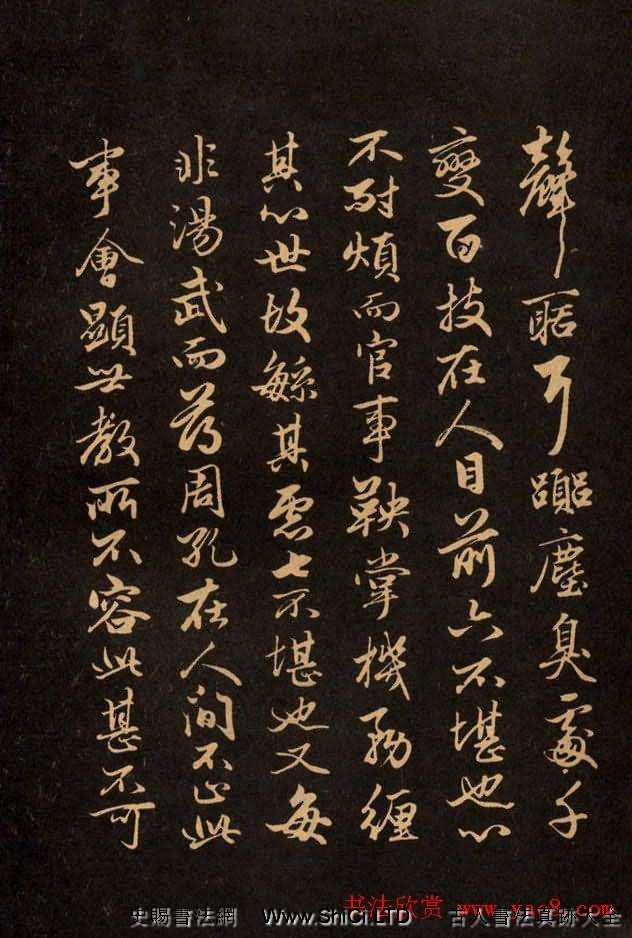 聲聒耳囂塵臭處千
變百技在人目前六不堪也心
不耐煩而官事鞅掌機務纏
其心世故繁其慮七不堪也又每
非湯武而薄周孔在人間不止此
事會顯世教所不容此甚不可
书法欣赏 www.yac8.com
史賜書法網 www.ShiCi.LTD 古人書法真跡大全